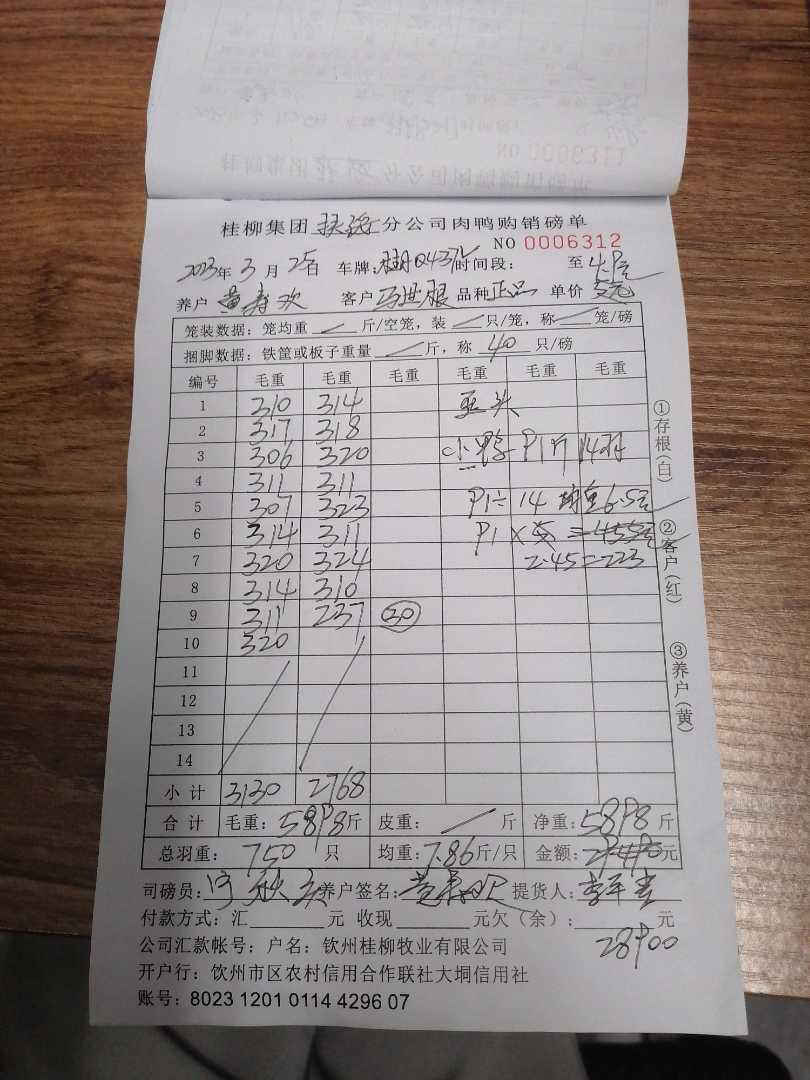 桂柳集团 分公司肉鸭购销磅单
NO 0006312
2023年3月25日 车牌: 时间段: 至
养户 黄寿欢 客户 冯世根 品种 正品 单价
笼装数据: 笼均重 / 斤/空笼, 装 / 只/笼, 称 / 笼/磅
捆脚数据: 铁筐或板子重量 / 斤, 称 40 只/磅
编号 毛重 毛重 毛重 毛重 毛重 毛重
1 310 314
2 317 318
3 306 320 小鸭 91斤
4 311 311
5 307 323 91÷14 6.5
6 314 311 91×5=455
7 320 324 2.45=223
8 314 310
9 311 237 30
10 320
11
12
13
14
小计 3130 2768
合计 毛重: 5898斤 皮重: / 斤 净重: 5898 斤
总羽重: 750 只 均重: 7.86斤/只 金额: 元
司磅员: 养户签名: 黄寿欢 提货人:
付款方式: 汇 元 收现 元欠(余): 元
28900
公司汇款帐号: 户名: 钦州桂柳牧业有限公司
开户行: 饮州市区农村信用合作联社大垌信用社
账号: 8023 1201 0114 4296 07
①存根(白)
②客户(红)
③养户(黄)